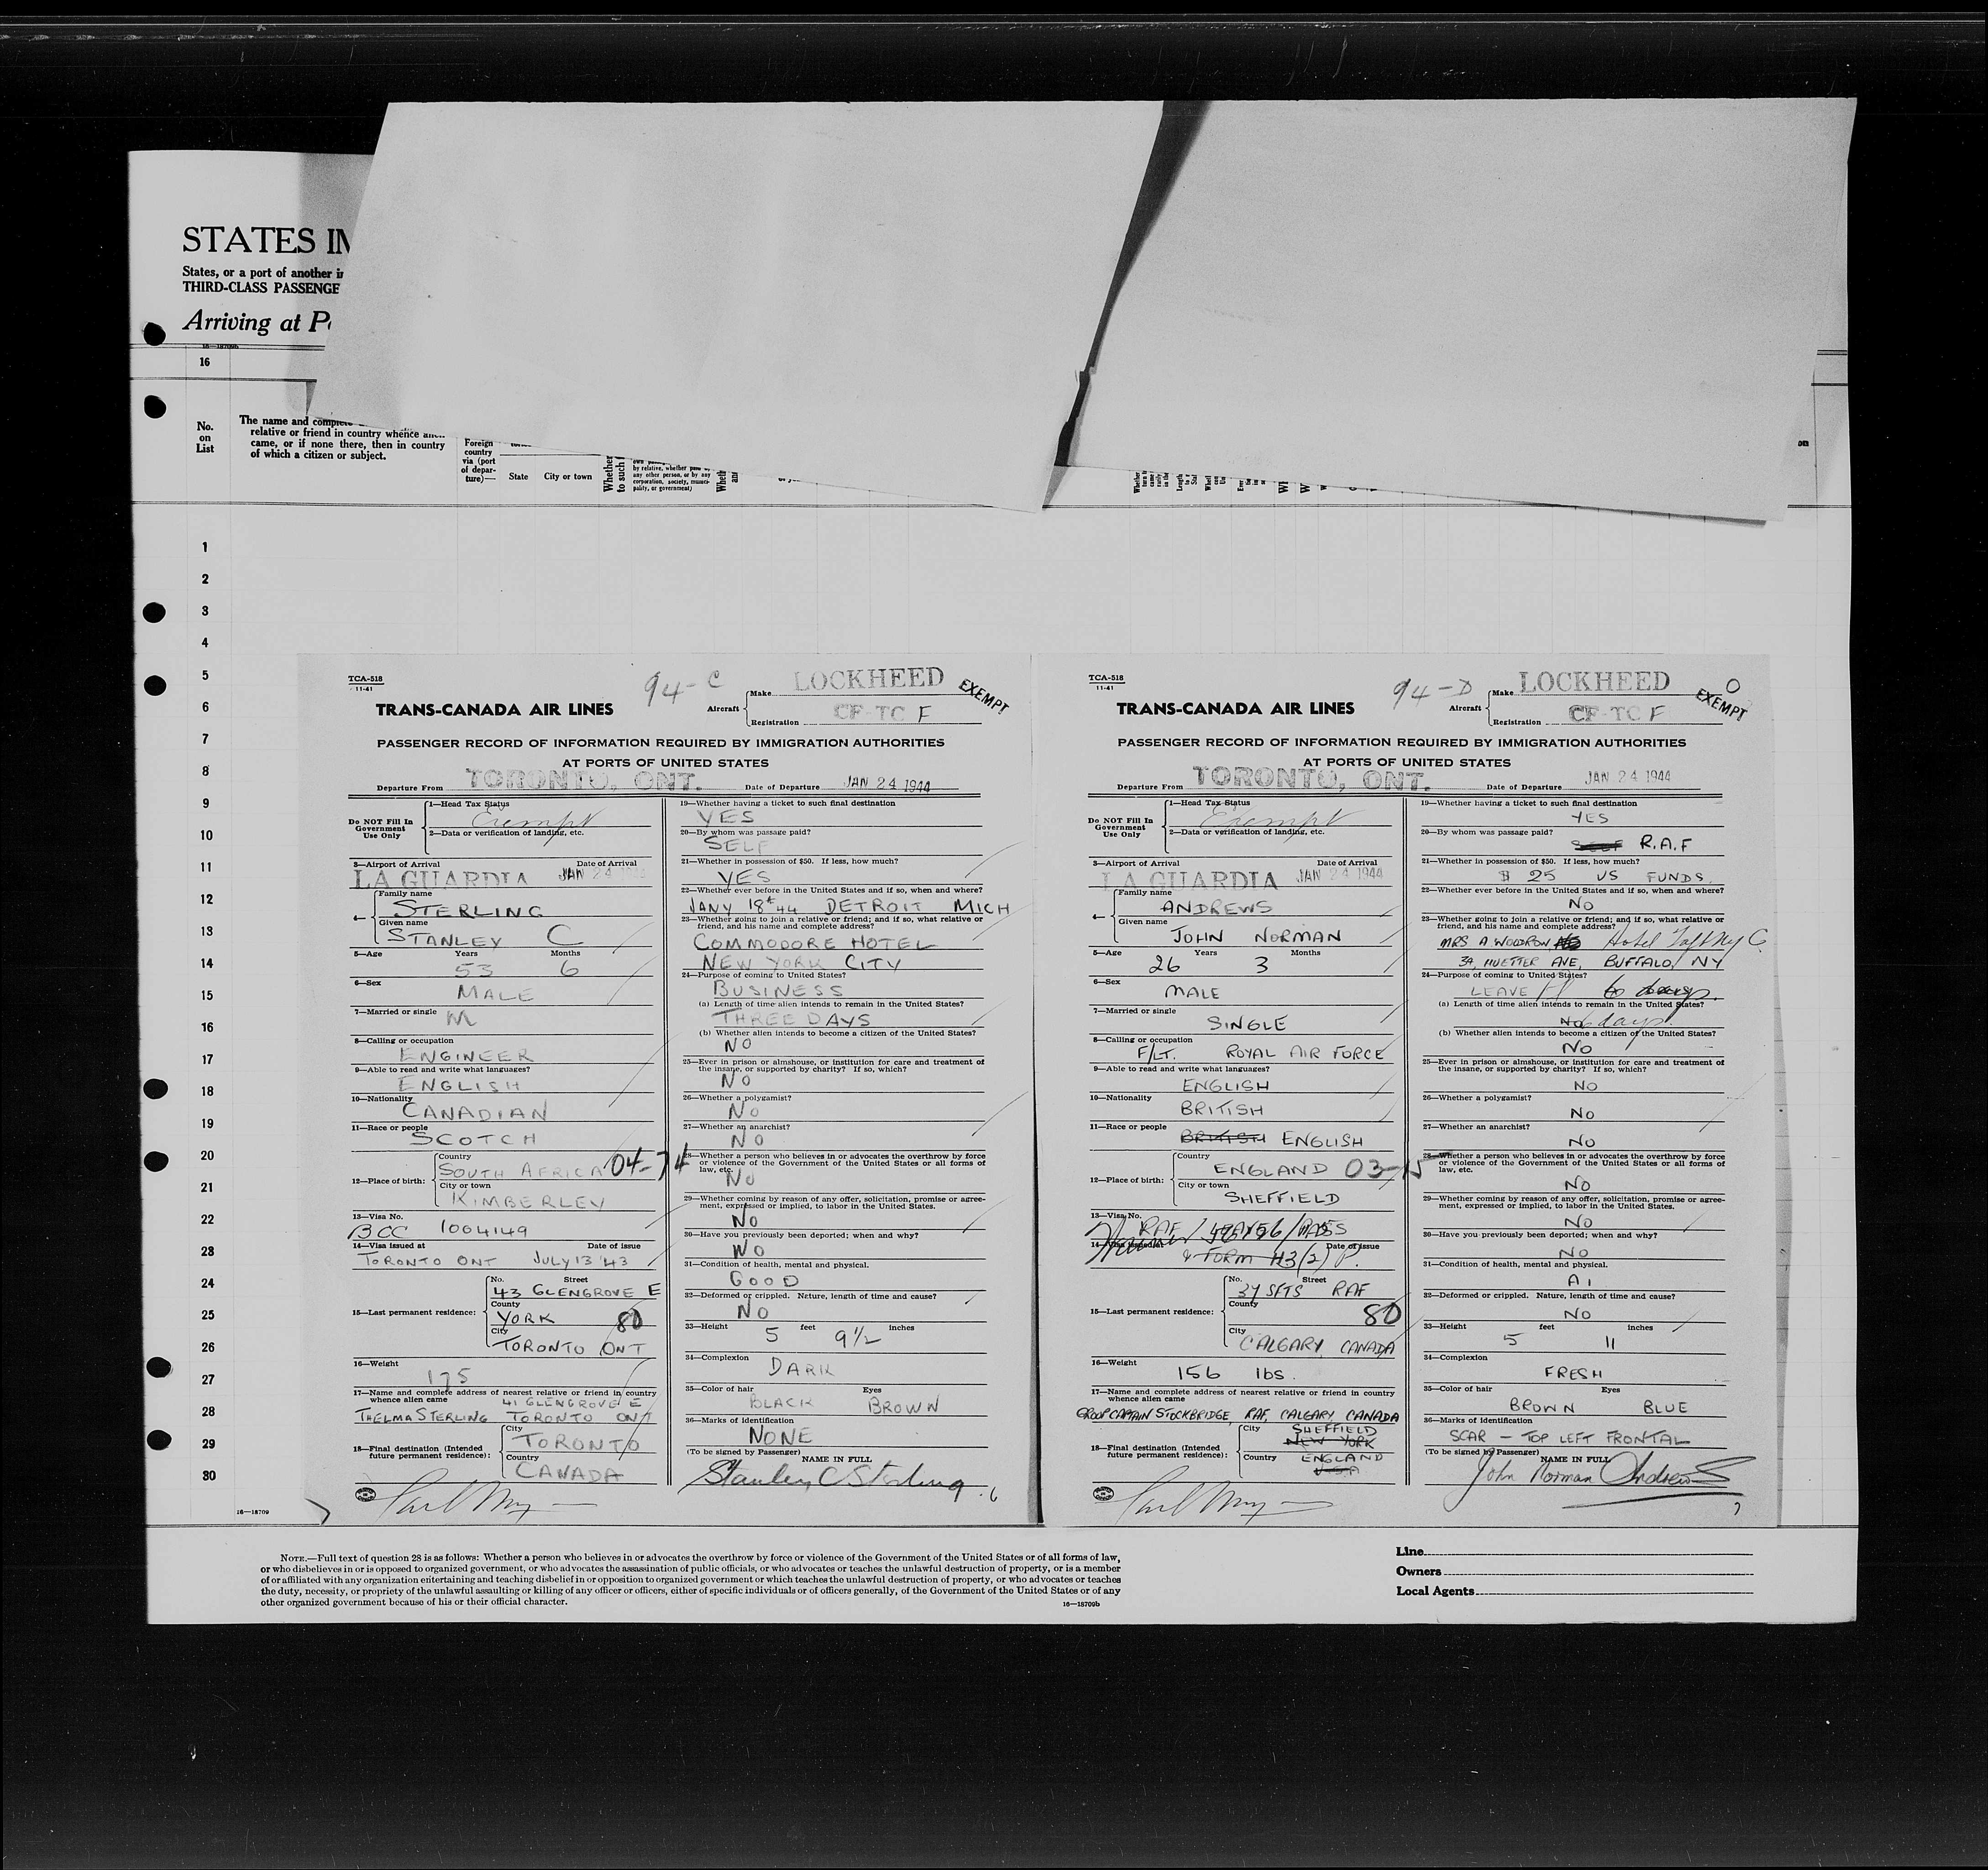 STATES IM
States, or a port of another in
THIRD-CLASS PASSENGE
Arriving at Po
16
No. on List
The name and complete
relative or friend in country whence alien
came, or if none there, then in country
of which a citizen or subject.
Foreign country via (port of departure)—
State City or town
Whether to such
by relative, whether paid by
any other person, or by any
corporation, society, munici-
pality, or government)
1
2
3
4
5
6
7
8
9
10
11
12
13
14
15
16
17
18
19
20
21
22
23
24
25
26
27
28
29
30
16—18709
TCA-518
11-41
94-C
Aircraft
Make LOCKHEED
Registration CF-TC F
EXEMPT
TRANS-CANADA AIR LINES
PASSENGER RECORD OF INFORMATION REQUIRED BY IMMIGRATION AUTHORITIES
AT PORTS OF UNITED STATES
Departure From TORONTO, ONT. Date of Departure JAN 24 1944
Do NOT Fill In Government Use Only
1—Head Tax Status
Exempt
2—Data or verification of landing, etc.
3—Airport of Arrival Date of Arrival
LA GUARDIA JAN 24 1944
4— Family name
STERLING
Given name
STANLEY C
5—Age Years Months
53 6
6—Sex
MALE
7—Married or single
M
8—Calling or occupation
ENGINEER
9—Able to read and write what languages?
ENGLISH
10—Nationality
CANADIAN
11—Race or people
SCOTCH
12—Place of birth: Country
SOUTH AFRICA 04-74
City or town
KIMBERLEY
13—Visa No.
BCC 1004149
14—Visa issued at Date of issue
TORONTO ONT JULY 13 '43
15—Last permanent residence: No. Street
43 GLENGROVE E
County
YORK 80
City
TORONTO ONT
16—Weight
175
17—Name and complete address of nearest relative or friend in country
whence alien came 41 GLENGROVE E
THELMA STERLING TORONTO ONT
18—Final destination (Intended future permanent residence): City
TORONTO
Country
CANADA
19—Whether having a ticket to such final destination
YES
20—By whom was passage paid?
SELF
21—Whether in possession of $50. If less, how much?
YES
22—Whether ever before in the United States and if so, when and where?
JANY 18th 44 DETROIT MICH
23—Whether going to join a relative or friend; and if so, what relative or
friend, and his name and complete address?
COMMODORE HOTEL
NEW YORK CITY
24—Purpose of coming to United States?
BUSINESS
(a) Length of time alien intends to remain in the United States?
THREE DAYS
(b) Whether alien intends to become a citizen of the United States?
NO
25—Ever in prison or almshouse, or institution for care and treatment of
the insane, or supported by charity? If so, which?
NO
26—Whether a polygamist?
NO
27—Whether an anarchist?
NO
28—Whether a person who believes in or advocates the overthrow by force
or violence of the Government of the United States or all forms of
law, etc.
NO
29—Whether coming by reason of any offer, solicitation, promise or agree-
ment, expressed or implied, to labor in the United States.
NO
30—Have you previously been deported; when and why?
NO
31—Condition of health, mental and physical.
GOOD
32—Deformed or crippled. Nature, length of time and cause?
NO
33—Height feet inches
5 9½
34—Complexion
DARK
35—Color of hair Eyes
BLACK BROWN
36—Marks of identification
NONE
(To be signed by Passenger) NAME IN FULL
Stanley C Sterling
6
TCA-518
11-41
94-D
Aircraft
Make LOCKHEED
Registration CF-TC F
0
EXEMPT
TRANS-CANADA AIR LINES
PASSENGER RECORD OF INFORMATION REQUIRED BY IMMIGRATION AUTHORITIES
AT PORTS OF UNITED STATES
Departure From TORONTO, ONT. Date of Departure JAN 24 1944
Do NOT Fill In Government Use Only
1—Head Tax Status
Exempt
2—Data or verification of landing, etc.
3—Airport of Arrival Date of Arrival
LA GUARDIA JAN 24 1944
4— Family name
ANDREWS
Given name
JOHN NORMAN
5—Age Years Months
26 3
6—Sex
MALE
7—Married or single
SINGLE
8—Calling or occupation
F/LT. ROYAL AIR FORCE
9—Able to read and write what languages?
ENGLISH
10—Nationality
BRITISH
11—Race or people
BRITISH ENGLISH
12—Place of birth: Country
ENGLAND 03-15
City or town
SHEFFIELD
13—Visa No.
RAF
14—Visa issued at Date of issue
& FORM H3(2)
15—Last permanent residence: No. Street
37 SFTS RAF
County
80
City
CALGARY, CANADA
16—Weight
156 lbs.
17—Name and complete address of nearest relative or friend in country
whence alien came
GROUP CAPTAIN STOCKBRIDGE, RAF, CALGARY CANADA
18—Final destination (Intended future permanent residence): City
SHEFFIELD
NEW YORK
Country
ENGLAND
USA
19—Whether having a ticket to such final destination
YES
20—By whom was passage paid?
SELF R.A.F
21—Whether in possession of $50. If less, how much?
$ 25 US FUNDS.
22—Whether ever before in the United States and if so, when and where?
NO
23—Whether going to join a relative or friend; and if so, what relative or
friend, and his name and complete address?
MRS A WOLDRON Hotel Taft NYC
39, HUETTER AVE, BUFFALO, NY
24—Purpose of coming to United States?
LEAVE
(a) Length of time alien intends to remain in the United States?
days.
(b) Whether alien intends to become a citizen of the United States?
NO
25—Ever in prison or almshouse, or institution for care and treatment of
the insane, or supported by charity? If so, which?
NO
26—Whether a polygamist?
NO
27—Whether an anarchist?
NO
28—Whether a person who believes in or advocates the overthrow by force
or violence of the Government of the United States or all forms of
law, etc.
NO
29—Whether coming by reason of any offer, solicitation, promise or agree-
ment, expressed or implied, to labor in the United States.
NO
30—Have you previously been deported; when and why?
NO
31—Condition of health, mental and physical.
A1
32—Deformed or crippled. Nature, length of time and cause?
NO
33—Height feet inches
5 11
34—Complexion
FRESH
35—Color of hair Eyes
BROWN BLUE
36—Marks of identification
SCAR - TOP LEFT FRONTAL
(To be signed by Passenger) NAME IN FULL
John Norman Andrews
7
NOTE.—Full text of question 28 is as follows: Whether a person who believes in or advocates the overthrow by force or violence of the Government of the United States or of all forms of law,
or who disbelieves in or is opposed to organized government, or who advocates the assassination of public officials, or who advocates or teaches the unlawful destruction of property, or is a member
of or affiliated with any organization entertaining and teaching disbelief in or opposition to organized government or which teaches the unlawful destruction of property, or who advocates or teaches
the duty, necessity, or propriety of the unlawful assaulting or killing of any officer or officers, either of specific individuals or of officers generally, of the Government of the United States or of any
other organized government because of his or their official character.
16—18709b
Line
Owners
Local Agents